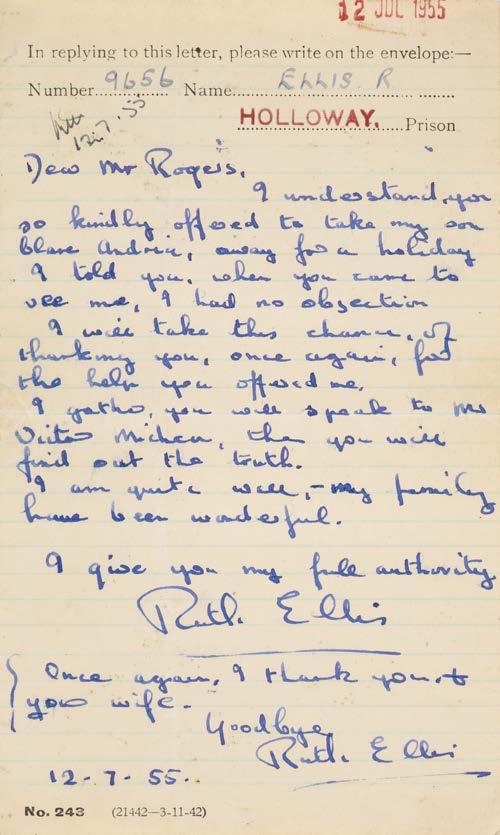 12 JUL 1955
In replying to this letter, please write on the envelope:—
Number 9656 Name ELLIS R
HOLLOWAY. Prison
12.7.55
Dear Mr Rogers,
I understand, you
so kindly offered to take my son
Clare Andria, away for a holiday
I told you, when you came to
see me, I had no objection
I will take this chance, of
thanking you, once again, for
the help you offered me.
I gather, you will speak to Mr
Victor Mishcon, then you will
find out the truth.
I am quite well, – my family
have been wonderful.
I give you my full authority
Ruth Ellis
Once again, I thank you, &
your wife.
Goodbye
Ruth Ellis
12-7-55.
No. 243 (21442—3-11-42)